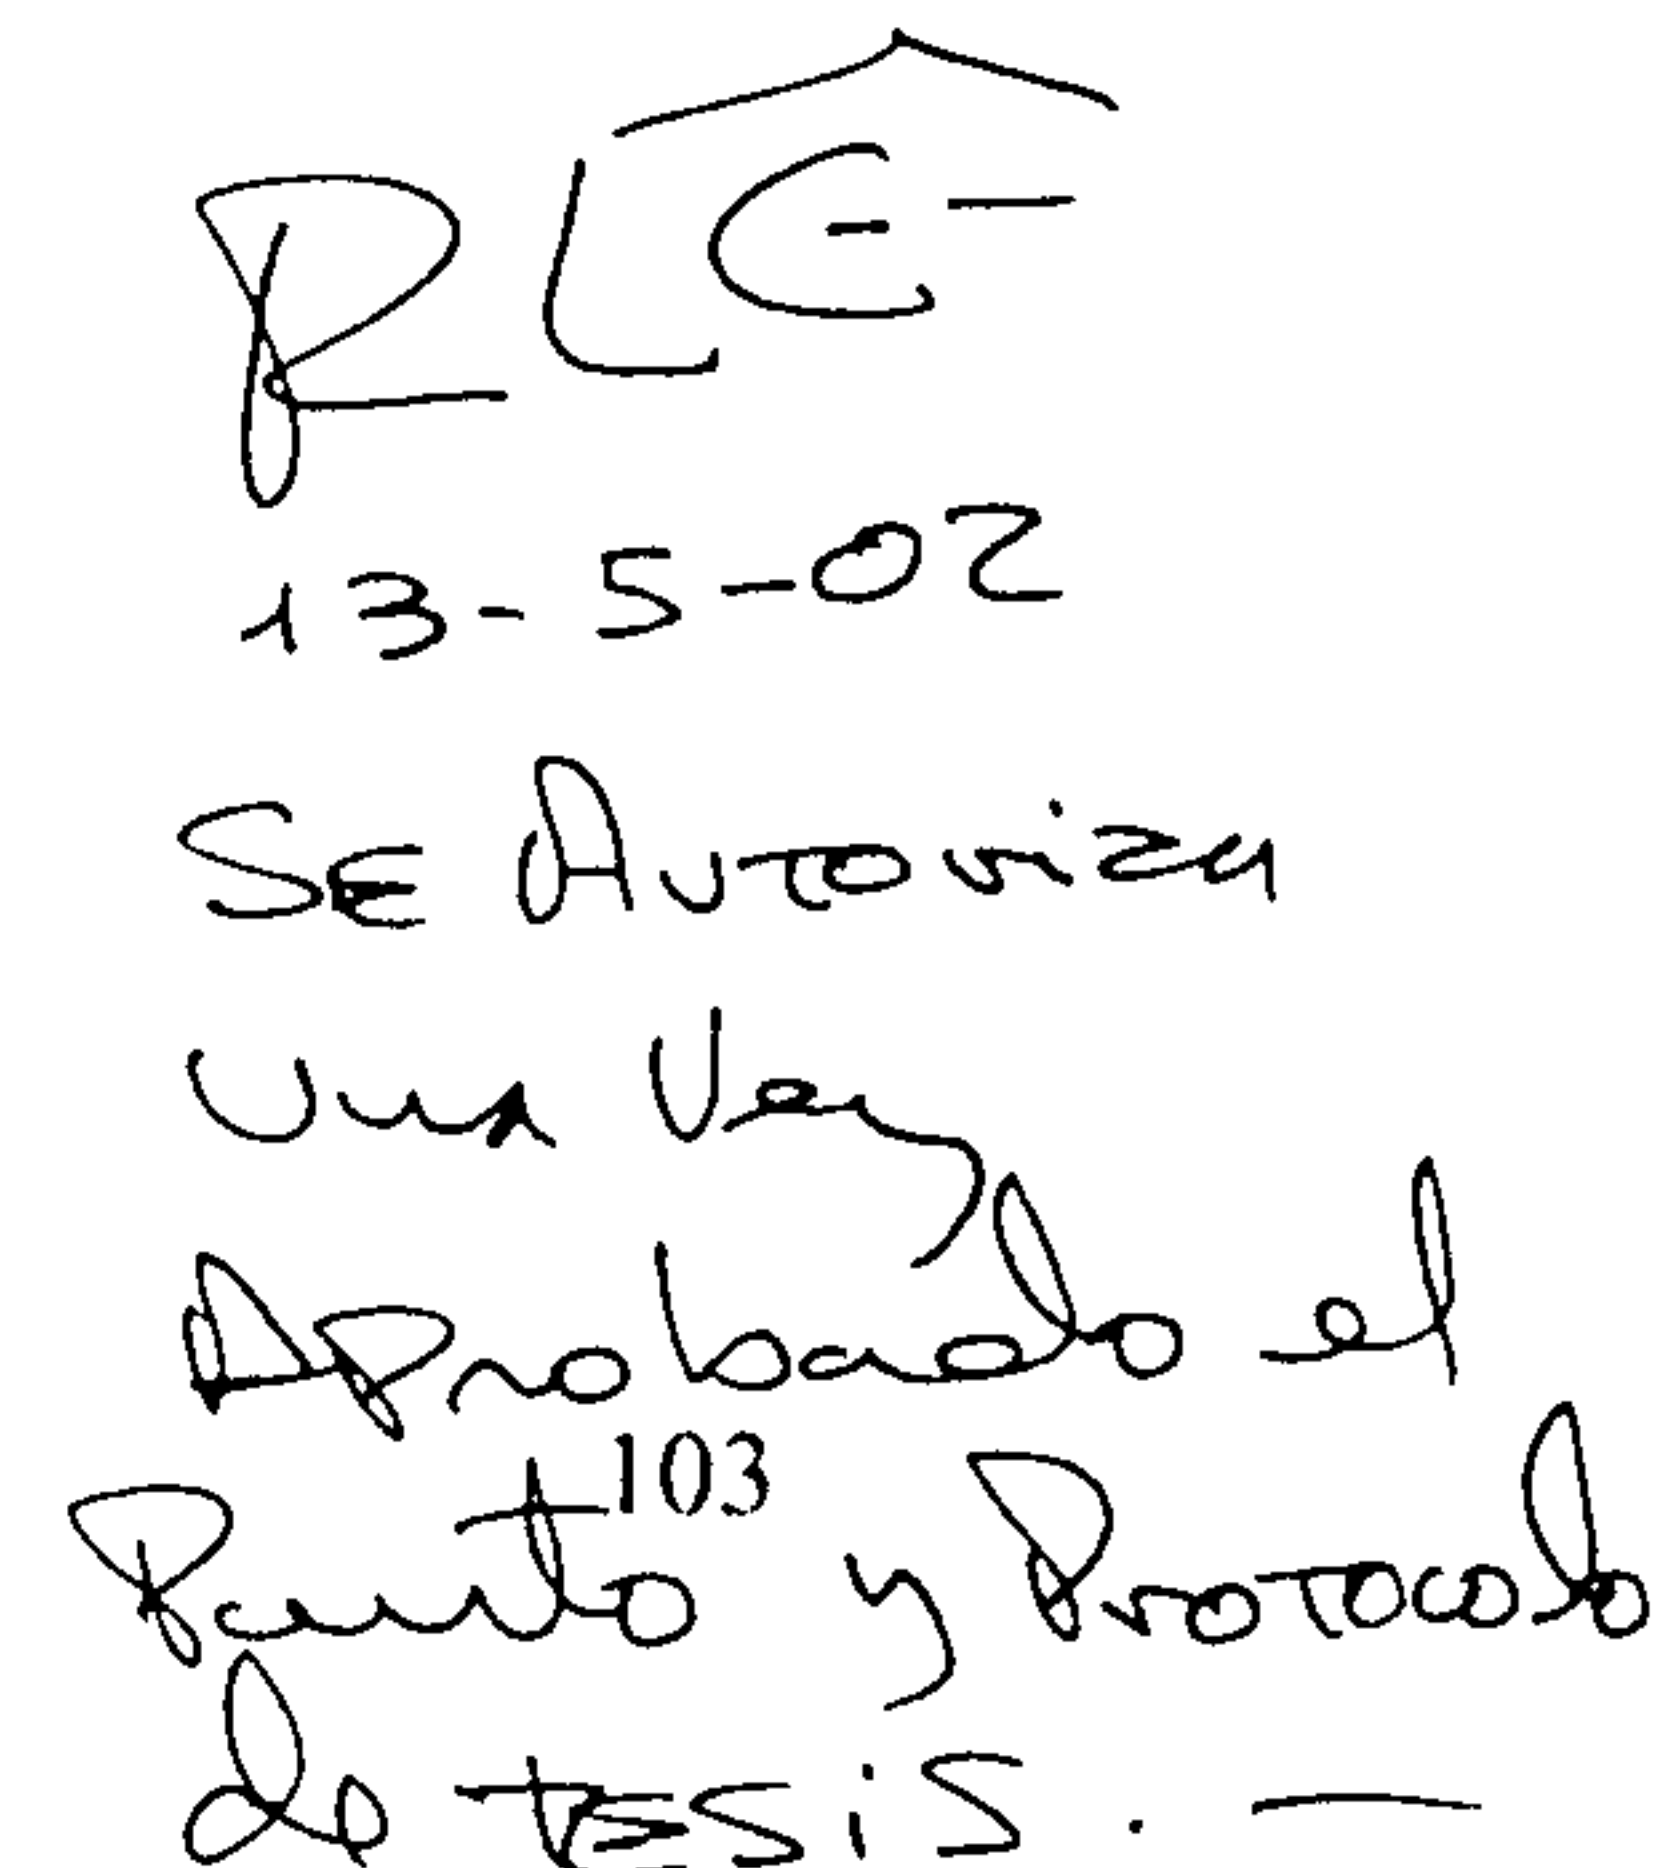 13-5-02
SE Autoriza
Una Vez
Aprobado el
103
Punto y Protocolo
de tesis. —